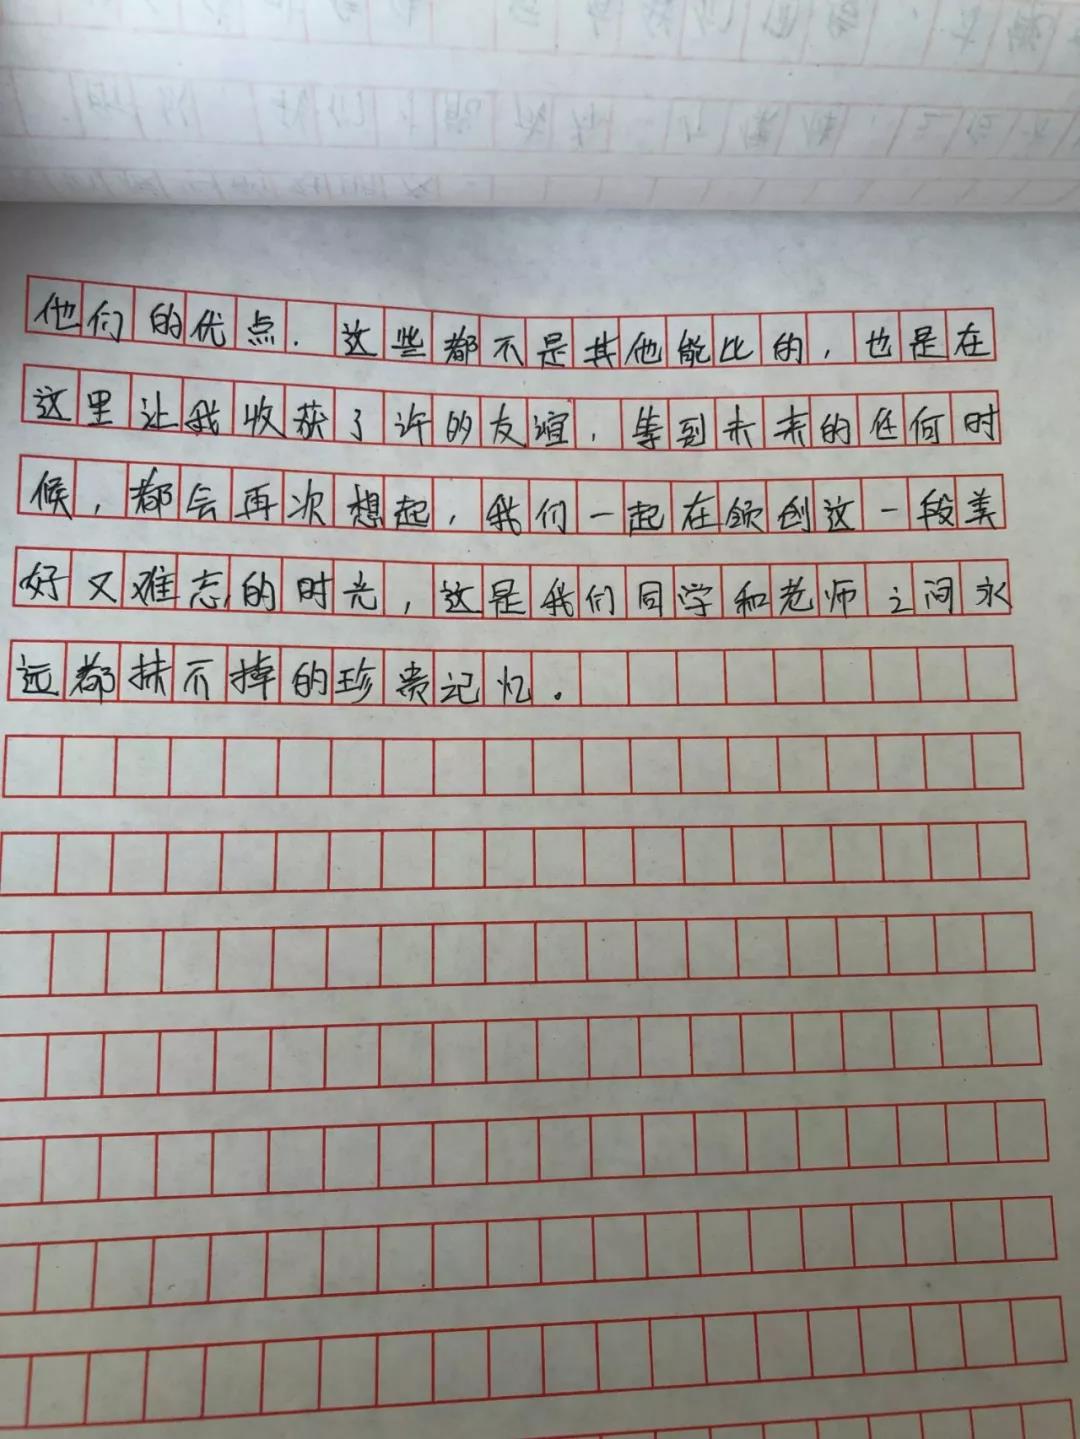 他们的优点. 这些都不是其他能比的, 也是在
这里让我收获了许的友谊, 等到未来的任何时
候, 都会再次想起, 我们一起在领创这一段美
好又难忘的时光, 这是我们同学和老师之间永
远都抹不掉的珍贵记忆.